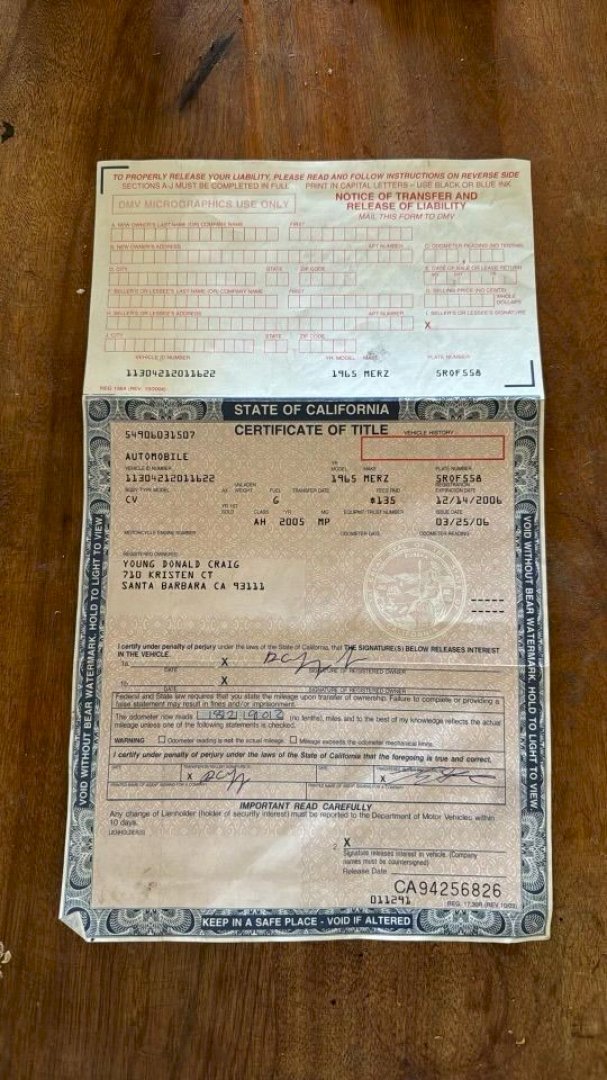 TO PROPERLY RELEASE YOUR LIABILITY, PLEASE READ AND FOLLOW INSTRUCTIONS ON REVERSE SIDE
SECTIONS A-J MUST BE COMPLETED IN FULL PRINT IN CAPITAL LETTERS - USE BLACK OR BLUE INK
DMV MICROGRAPHICS USE ONLY
NOTICE OF TRANSFER AND
RELEASE OF LIABILITY
MAIL THIS FORM TO DMV
A. NEW OWNER'S LAST NAME (OR) COMPANY NAME FIRST
B. NEW OWNER'S ADDRESS APT NUMBER C. ODOMETER READING (NO TENTHS)
D. CITY STATE ZIP CODE E. DATE OF SALE OR LEASE RETURN
F. SELLER'S OR LESSEE'S LAST NAME (OR) COMPANY NAME FIRST G. SELLING PRICE (NO CENTS)
WHOLE
DOLLARS
H. SELLER'S OR LESSEE'S ADDRESS APT NUMBER I. SELLER'S OR LESSEE'S SIGNATURE
X
J. CITY STATE ZIP CODE
VEHICLE ID NUMBER YR. MODEL MAKE PLATE NUMBER
11304212011622 1965 MERZ 5ROF558
STATE OF CALIFORNIA
CERTIFICATE OF TITLE
54906031507
VEHICLE HISTORY
AUTOMOBILE
VEHICLE ID NUMBER YR MODEL MAKE PLATE NUMBER
11304212011622 1965 MERZ 5ROF558
BODY TYPE MODEL AX UNLADEN WEIGHT FUEL TRANSFER DATE FEES PAID REGISTRATION EXPIRATION DATE
CV G $135 12/14/2006
YR 1ST SOLD CLASS YR MO EQUIPMT/TRUST NUMBER ISSUE DATE
AH 2005 MP 03/25/06
MOTORCYCLE ENGINE NUMBER ODOMETER DATE ODOMETER READING
REGISTERED OWNER(S)
YOUNG DONALD CRAIG
710 KRISTEN CT
SANTA BARBARA CA 93111
I certify under penalty of perjury under the laws of the State of California, that THE SIGNATURE(S) BELOW RELEASES INTEREST
IN THE VEHICLE.
1a. X
DATE SIGNATURE OF REGISTERED OWNER
1b. X
DATE SIGNATURE OF REGISTERED OWNER
Federal and State law requires that you state the mileage upon transfer of ownership. Failure to complete or providing a
false statement may result in fines and/or imprisonment.
The odometer now reads (no tenths), miles and to the best of my knowledge reflects the actual
mileage unless one of the following statements is checked.
WARNING Odometer reading is not the actual mileage. Mileage exceeds the odometer mechanical limits.
I certify under penalty of perjury under the laws of the State of California that the foregoing is true and correct.
X X
IMPORTANT READ CAREFULLY
Any change of Lienholder (holder of security interest) must be reported to the Department of Motor Vehicles within
10 days.
LIENHOLDER(S)
2. X
Signature releases interest in vehicle. (Company
names must be countersigned)
Release Date
CA94256826
011291
KEEP IN A SAFE PLACE - VOID IF ALTERED
VOID WITHOUT BEAR WATERMARK. HOLD TO LIGHT TO VIEW
VOID WITHOUT BEAR WATERMARK. HOLD TO LIGHT TO VIEW